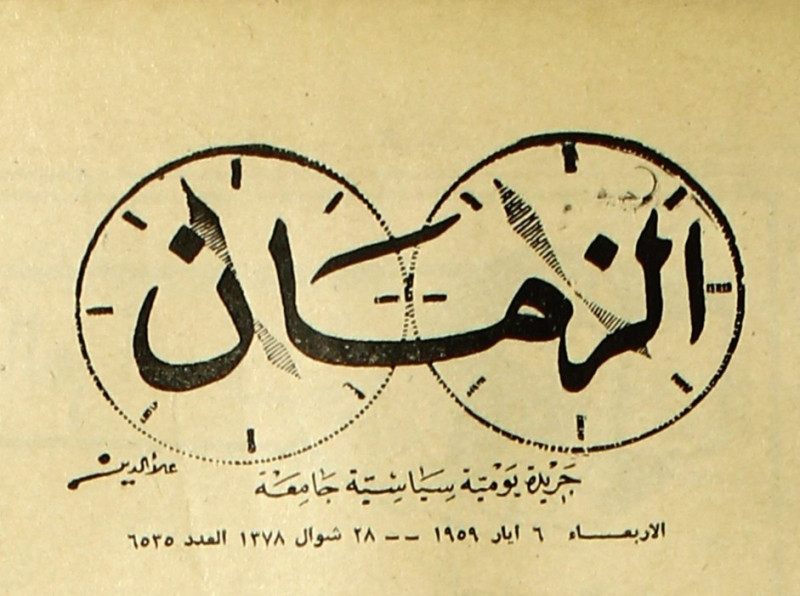 الزمان
علاءالدين
جَرْيدة يَوْمَيّة سِيَاسْيّة جَامِعَة
الاربعـــاء ٦ ايار ١٩٥٩ -- ٢٨ شوال ١٣٧٨ العدد ٦٥٣٥